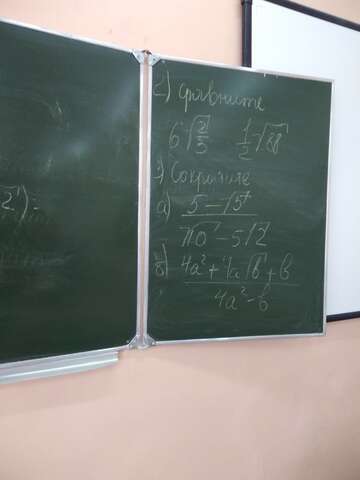 2) Сравните
6√(2/3) 1/2√88
3) Сократите
а) (5 − √5)/(√10 − 5√2)
б) (4a² + 4a√b + b)/(4a² − b)
2) =